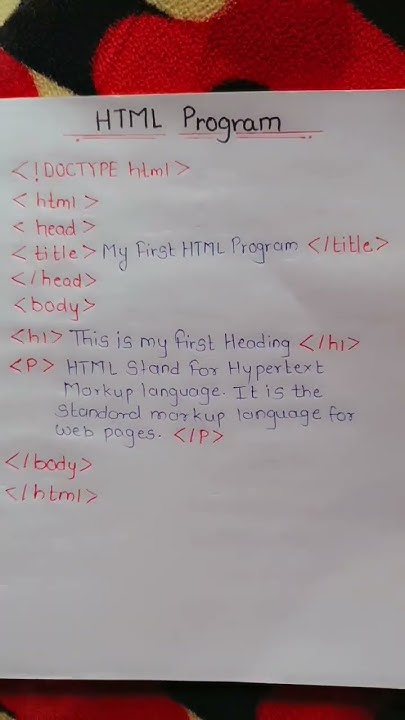 HTML Program
<!DOCTYPE html>
<html>
<head>
<title> My first HTML Program </title>
</head>
<body>
<h1> This is my first Heading </h1>
<P> HTML Stand for Hypertext
Markup language. It is the
standard markup language for
web pages. </P>
</body>
</html>